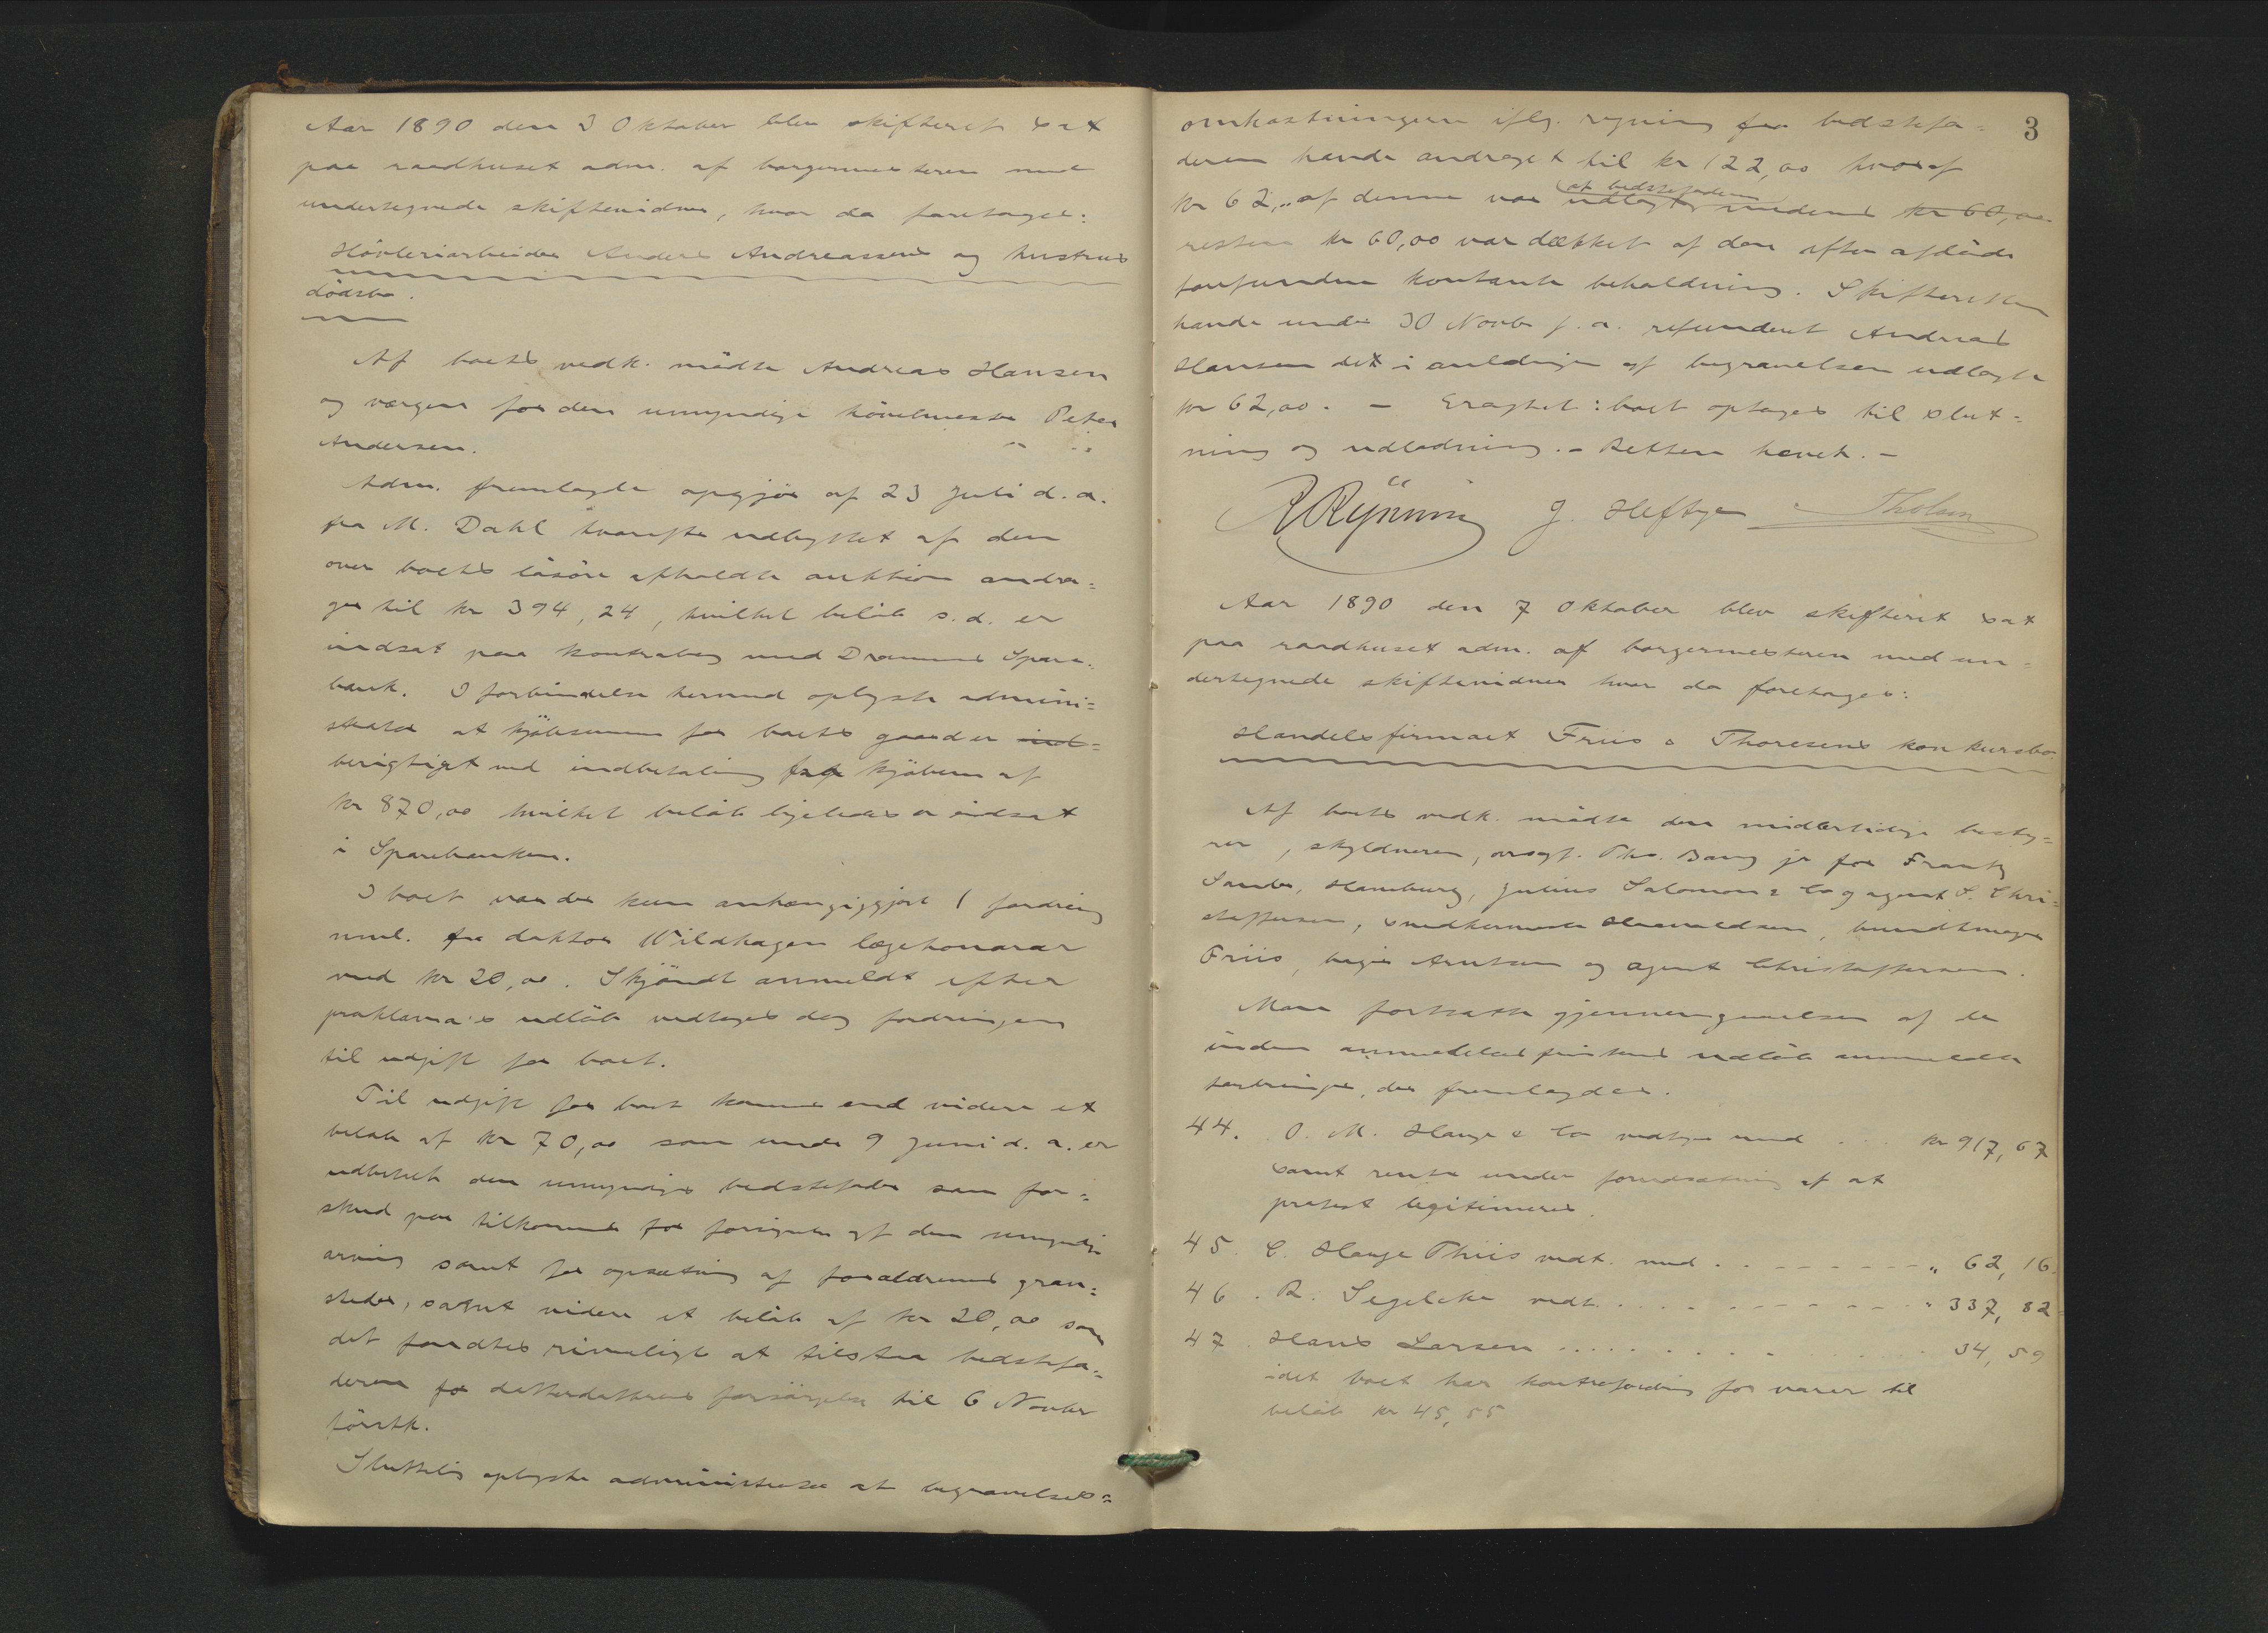 Aar 1890 den 3 Oktober blev skifteret sat
paa raadhuset adm. af borgermesteren med
undertegnede skiftevidner, hvor da foretoges:
Hövleriarbeider Anders Andreassens og hustrus
dödsbo.
Af boets vedk. mödte Andreas Hansen
og værgen for den umyndige hövelmester Peter
Andersen.
Adm. fremlagde opgjör af 23 Juli d.a.
fra M. Dahl hvorefter udbyttet af den
over boets lösöre afholdte auktion andra=
ger til kr 394,24, hvilket belöb s.d. er
indsat paa kontrabog med Drammens Spare=
bank. I forbindelse hermed oplyste admini=
strator at kjöbesummen for boets gaard er ind=
berigtiget ved indbetaling fra kjöberen af
kr 870,00 hvilket belöb ligeledes er indsat
i Sparebanken.
I boet var der kun anhængiggjort 1 fordring
neml. fra doktor Wildhagen lægehonorar
med kr 20,00. Skjöndt anmeldt efter
proklama's udlöb vedtoges dog fordringen
til udgift for boet.
Til udgift for boet kommer end videre et
belöb af kr 70,00 som under 9 Juni d.a. er
udbetalt den umyndiges bedstefader som for=
skud paa tilkommende for forsörgelse af den umyndige
arving samt for opsætning af forældrenes grav=
steder, samt videre et belöb af kr 20,00 som
det fandtes rimeligt at tilstaa bedstefa=
deren for datterdatterens forsörgelse til 6 Novbr
förstk.
Sluttelig oplyste administrator at begravelses=
3
omkostningerne iflg. regning fra bedstefa=
deren havde andraget til kr 122,00 hvoraf
kr 62,,, af denne var udlagt af bedstefaderen medens kr 60,00
resten kr 60,00 var dækket af den efter afdöde
forefundne kontante beholdning. Skifteretten
havde under 30 Novbr f.a. refunderet Andreas
Hansen det i anledning af begravelsen udlagte
kr 62,00. – Eragtet: boet optages til slut=
ning og udlodning. – Retten hævet. –
R Rÿnning J. Heftye Tholsen
Aar 1890 den 7 Oktober blev skifteret sat
paa raadhuset adm. af borgermesteren med un=
dertegnede skiftevidner hvor da foretoges:
Handelsfirmaet Friis & Thoresens konkursbo.
Af boets vedk. mödte den midlertidige besty=
rer, skyldneren, ovrsgf. Ths. Bang jr for Frantz
Hamburg, Julius Salomon & Co og agent S. Chri=
stoffersen, bundtmager
Friis, Arntsen og agent Christoffersen.
Man fortsatte gjennemgaaelsen af de
inden anmeldelsesfristens udlöb anmeldte
fordringer, der fremlagdes.
44. O. M. Hauge & Co vedtoges med . . . kr 917,67
samt renter under forudsætning af at
protest legitimeres.
45. C. Hauge Thiis vedt. med . . . . . . . . „ 62,16.
46. R. Segelcke vedt. . . . . . . . . . . „ 337,82
47. Hans Larsen . . . . . . . . . . . . 34,59
idet boet har kontrafordring for varer til
belöb kr 45,55